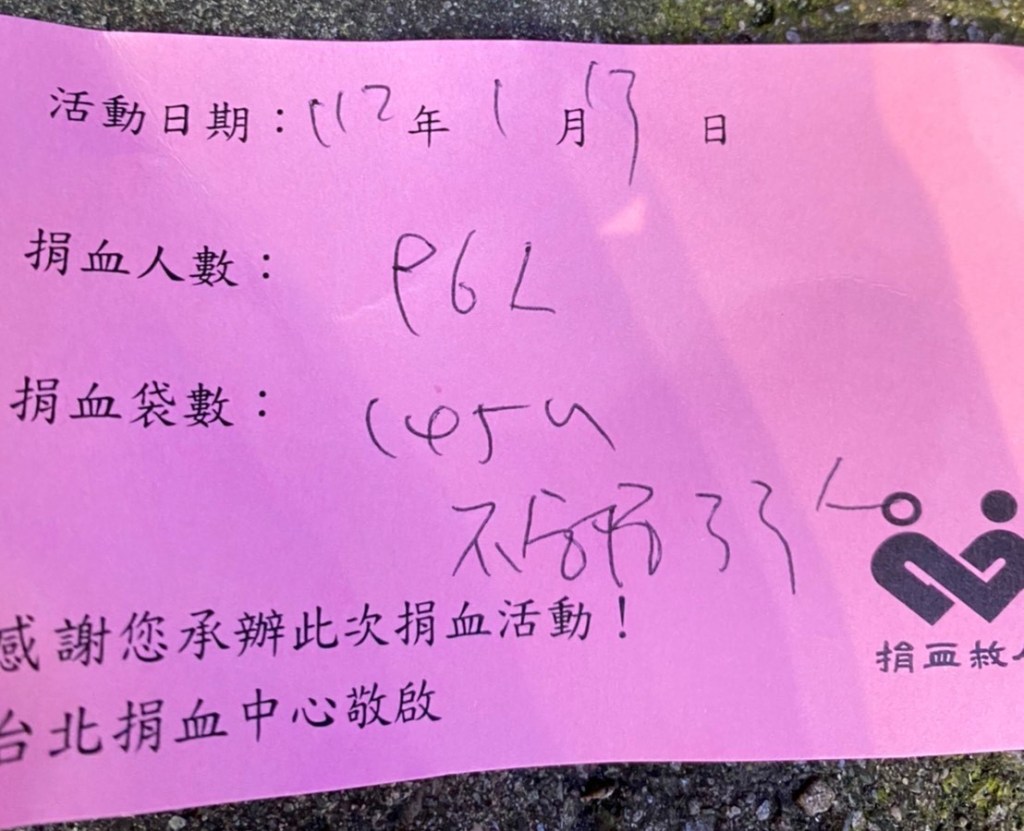 活動日期：112年 1月17日
捐血人數：96人
捐血袋數：145u
不合格 33人
捐血救人
感謝您承辦此次捐血活動！
台北捐血中心敬啟